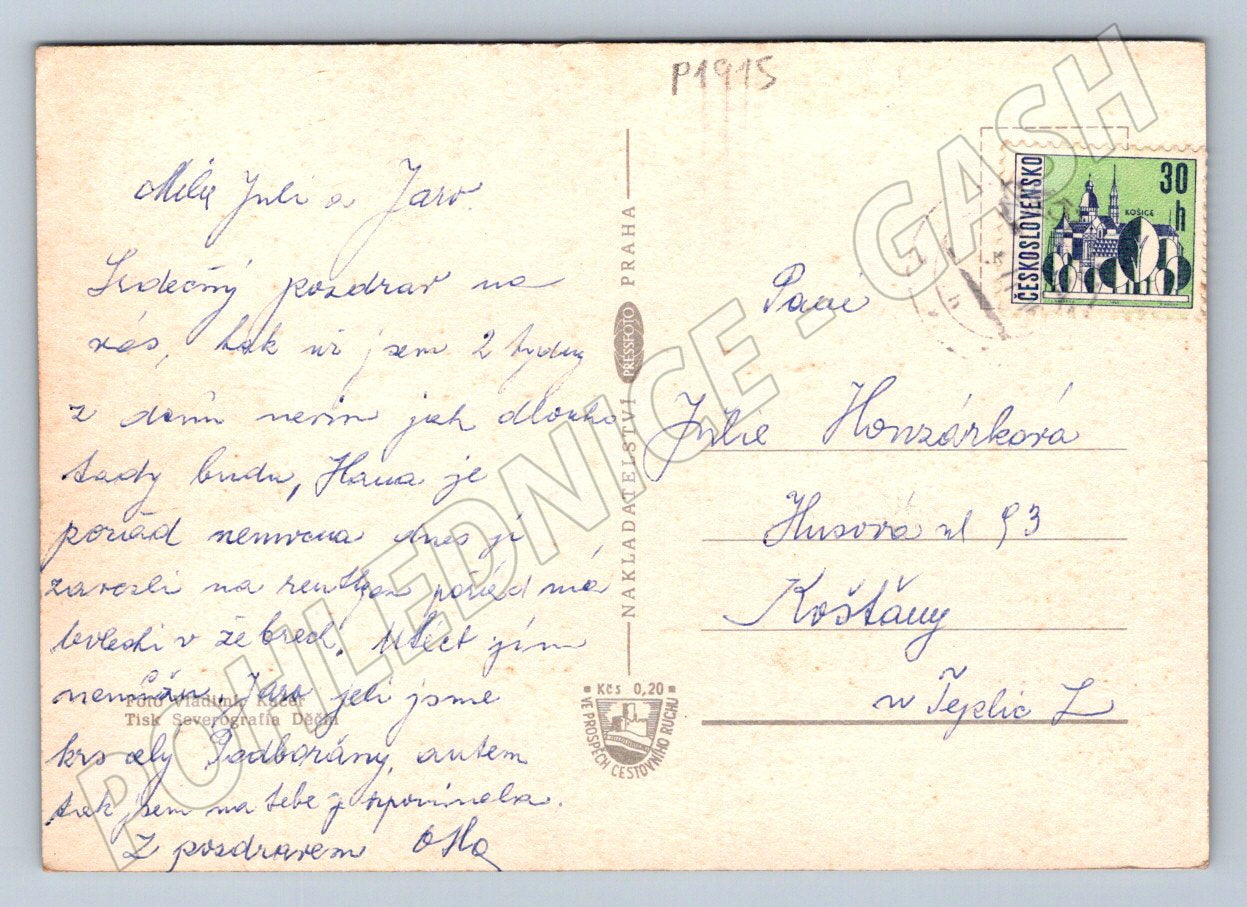 P1915
Milá Juli a Jaro.
Srdečný pozdrav na
vás, tak už jsem 2 týdny
z domu nevim jak dlouho
tady budu, Hana je
pořád nemocna dnes ji
zavezli na rentgen pořád má
bolesti v žebrech. Utect jim
nemůžu, Jaro jeli jsme
krs celý Podbořany, autem
tak jsem na tebe vzpominala.
Z pozdravem
Foto Vladimír Kácer
Tisk Severografia Děčín
NAKLADATELSTVÍ PRESSFOTO PRAHA
Kčs 0,20
VE PROSPĚCH CESTOVNÍHO RUCHU
ČESKOSLOVENSKO
30 h
KOŠICE
Paní
Julie Honzárková
Husová ul 93
Košťany
u Teplic
POHLEDNICE - GASH